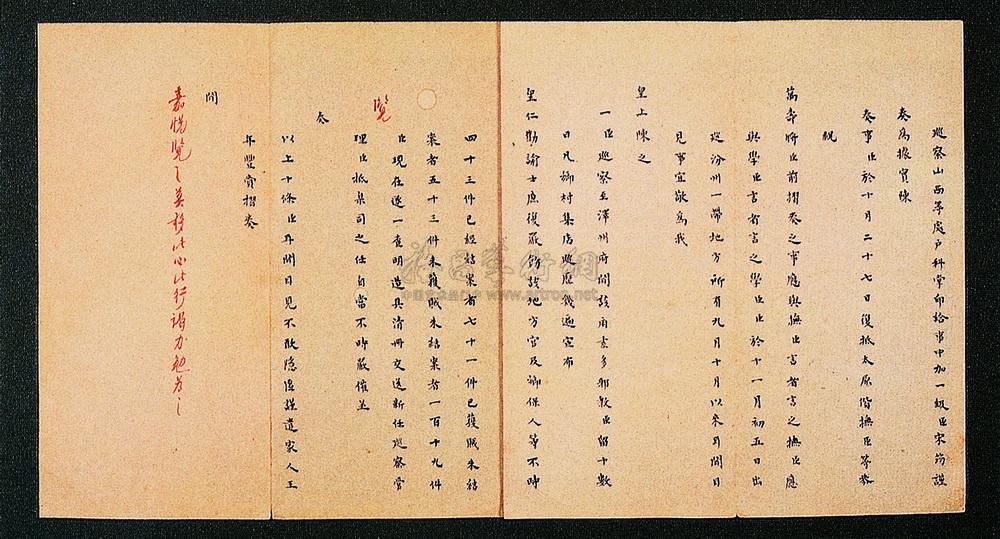 巡察山西等處户科掌印給事中加一級臣宋筠謹
奏為據實陳
奏事臣於十月二十七日復抵太原偕撫臣等恭
祝
萬壽將臣前摺奏之事應與撫臣言者言之撫臣應
與學臣言者言之學臣臣於十一月初五日出
巡汾州一帶地方所有九月十月以來耳聞目
見事宜敬為我
皇上陳之
一臣巡察至澤州府聞該府素多邪教臣留十數
日凡鄉村集店巡歷幾遍宣布
皇仁勸諭士庶復嚴飭該地方官及鄉保人等不時
四十三件已經結案者七十一件已獲賊未結
案者五十三件未獲賊未結案者一百十九件
臣現在逐一查明造具清冊交送新任巡察官
理臣抵臬司之任自當不時嚴催並
奏
覽
以上十條臣耳聞目見不敢隱匿謹遣家人王
年豐賫摺奏
聞
嘉悦覽之莫移此心此行竭力勉為之